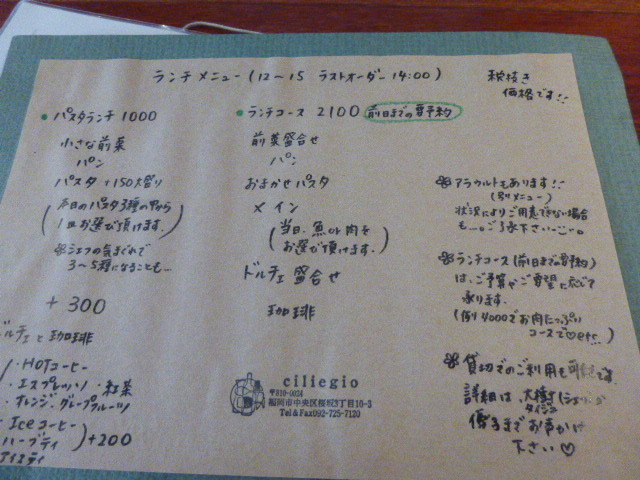 ランチメニュー (12〜15 ラストオーダー 14:00)
税抜き
価格です!!
● パスタランチ 1000
小さな前菜
パン
パスタ +150大盛り
(本日のパスタ3種の中から
1皿お選び頂けます.)
※シェフの気まぐれで
3〜5種になることも…
+ 300
ドルチェと珈琲
・HOTコーヒー
・エスプレッソ ・紅茶
・オレンジ、グレープフルーツ
・Iceコーヒー
ハーブティ
アイスティ
)+200
● ランチコース 2100 前日までの要予約
前菜盛合せ
パン
おまかせパスタ
メイン
(当日、魚or肉を
お選び頂けます.)
ドルチェ盛合せ
珈琲
アラカルトもあります!!
(別メニュー)
状況によりご用意できない場合
も…。ご了承下さい
ランチコース(前日までの要予約)
は、ご予算やご要望に応じて
承ります.
(例 4000でお肉たっぷり
コースで♡etc...)
貸切でのご利用も可能です.
詳細は、大樹(シェフ)か
タイジュ
までお声かけ
下さい♡
ciliegio
〒810-0024
福岡市中央区桜坂3丁目10-3
Tel&Fax092-725-7120